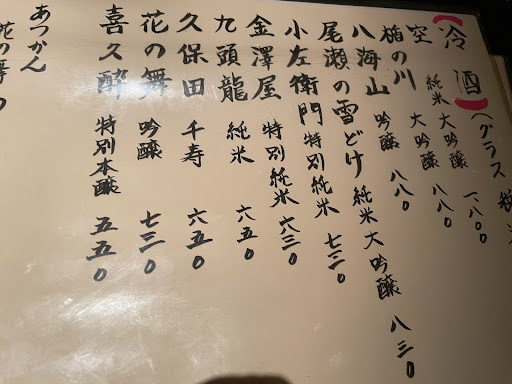 【冷酒】(グラス
空 純米大吟醸 一、八〇〇
楯の川 大吟醸 八八〇
八海山 吟醸 八八〇
尾瀬の雪どけ 純米大吟醸 八三〇
小左衛門 特別純米 七三〇
金澤屋 特別純米 六三〇
九頭龍 純米 六五〇
久保田 千寿 六五〇
花の舞 吟醸 七三〇
喜久酔 特別本醸 五五〇
あつかん
花の舞